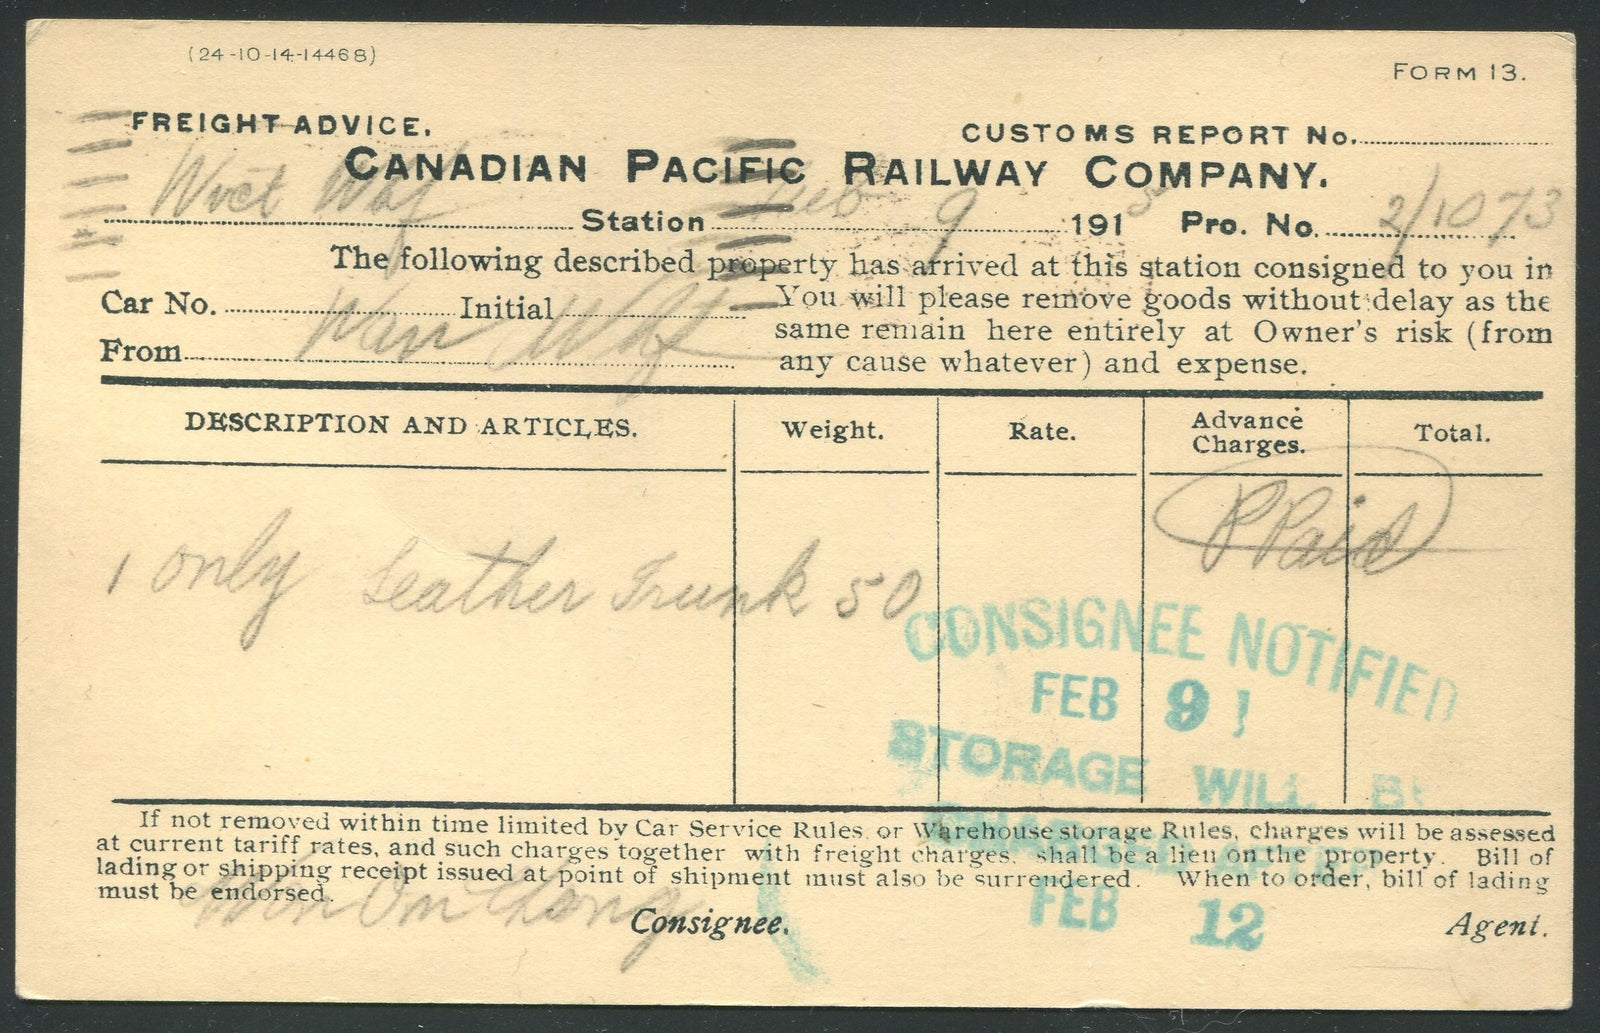 (24-10-14-14468)
FORM 13.
FREIGHT ADVICE.
CUSTOMS REPORT No.
CANADIAN PACIFIC RAILWAY COMPANY.
Vict Whf Station Feb 9 1915 Pro. No. 2/1073
The following described property has arrived at this station consigned to you in
Car No. Initial
You will please remove goods without delay as the
same remain here entirely at Owner's risk (from
From Van Whf
any cause whatever) and expense.
DESCRIPTION AND ARTICLES. Weight. Rate. Advance Charges. Total.
PPaid
1 only Leather Trunk 50
CONSIGNEE NOTIFIED
FEB 9 1
STORAGE WILL BE
If not removed within time limited by Car Service Rules, or Warehouse storage Rules, charges will be assessed
at current tariff rates, and such charges together with freight charges, shall be a lien on the property. Bill of
lading or shipping receipt issued at point of shipment must also be surrendered. When to order, bill of lading
must be endorsed.
FEB 12
On Chong Consignee.
Agent.